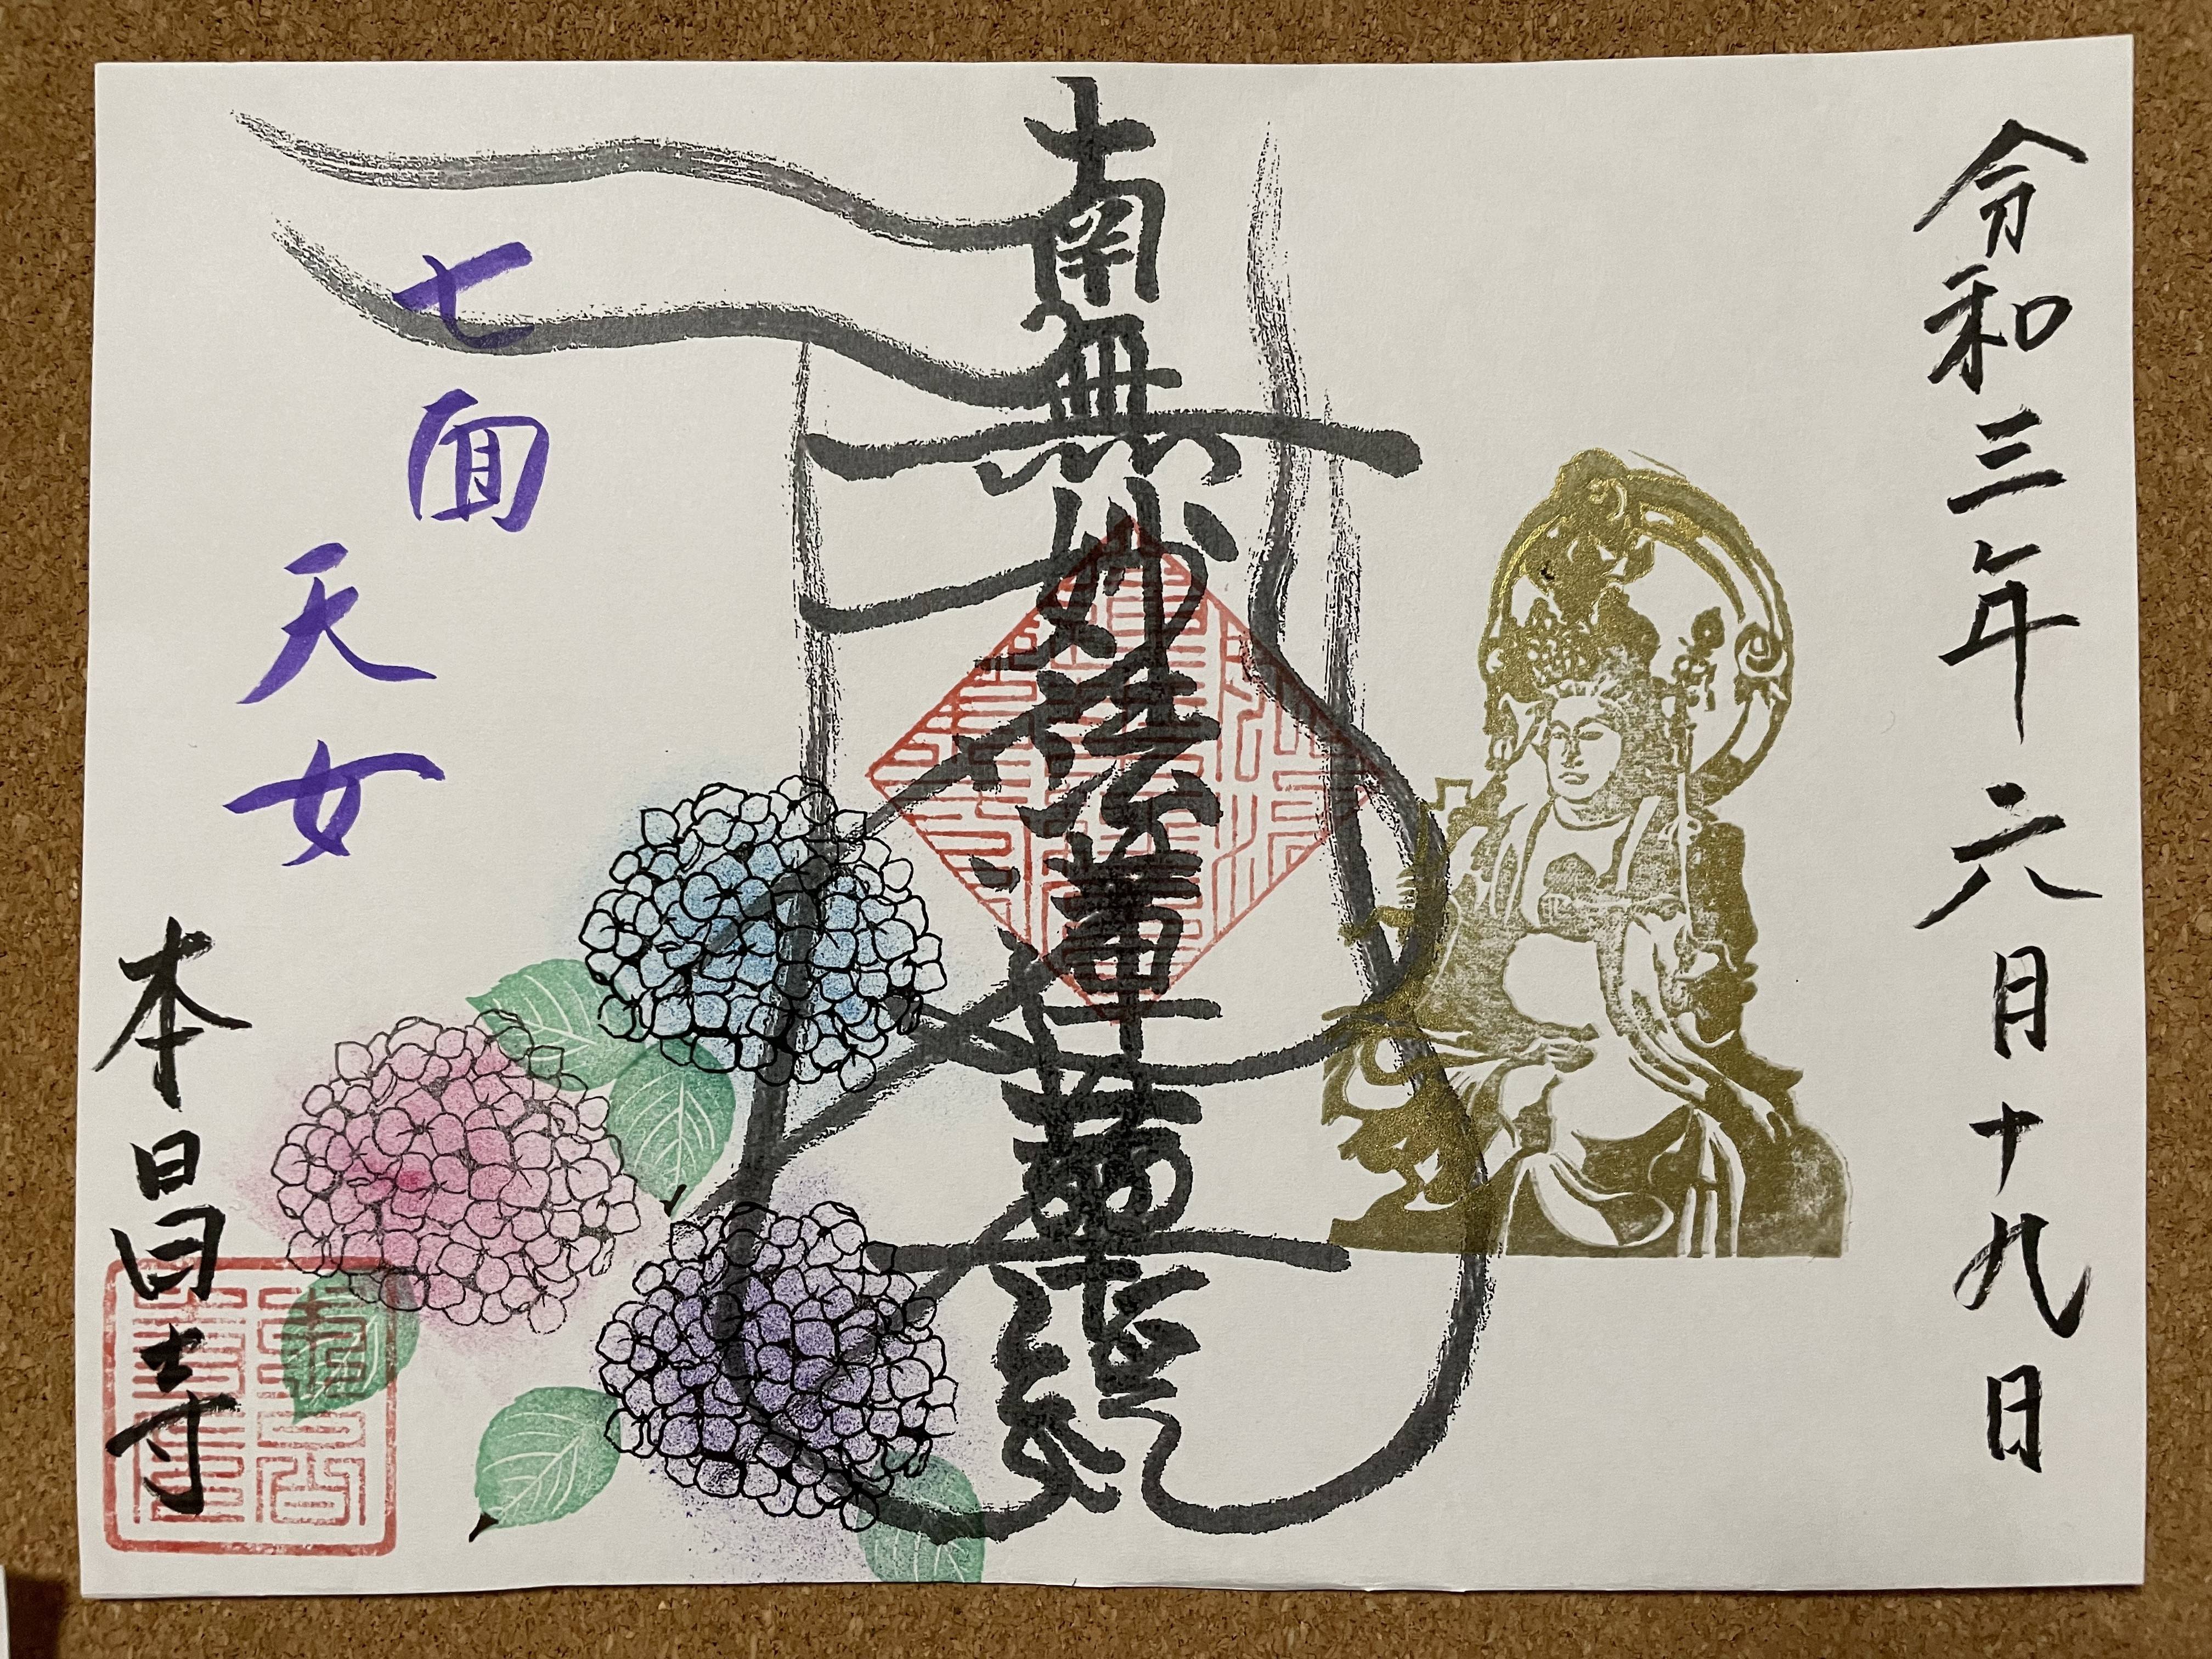 令和三年六月十九日
南無妙法蓮華経
七面
天女
本昌寺